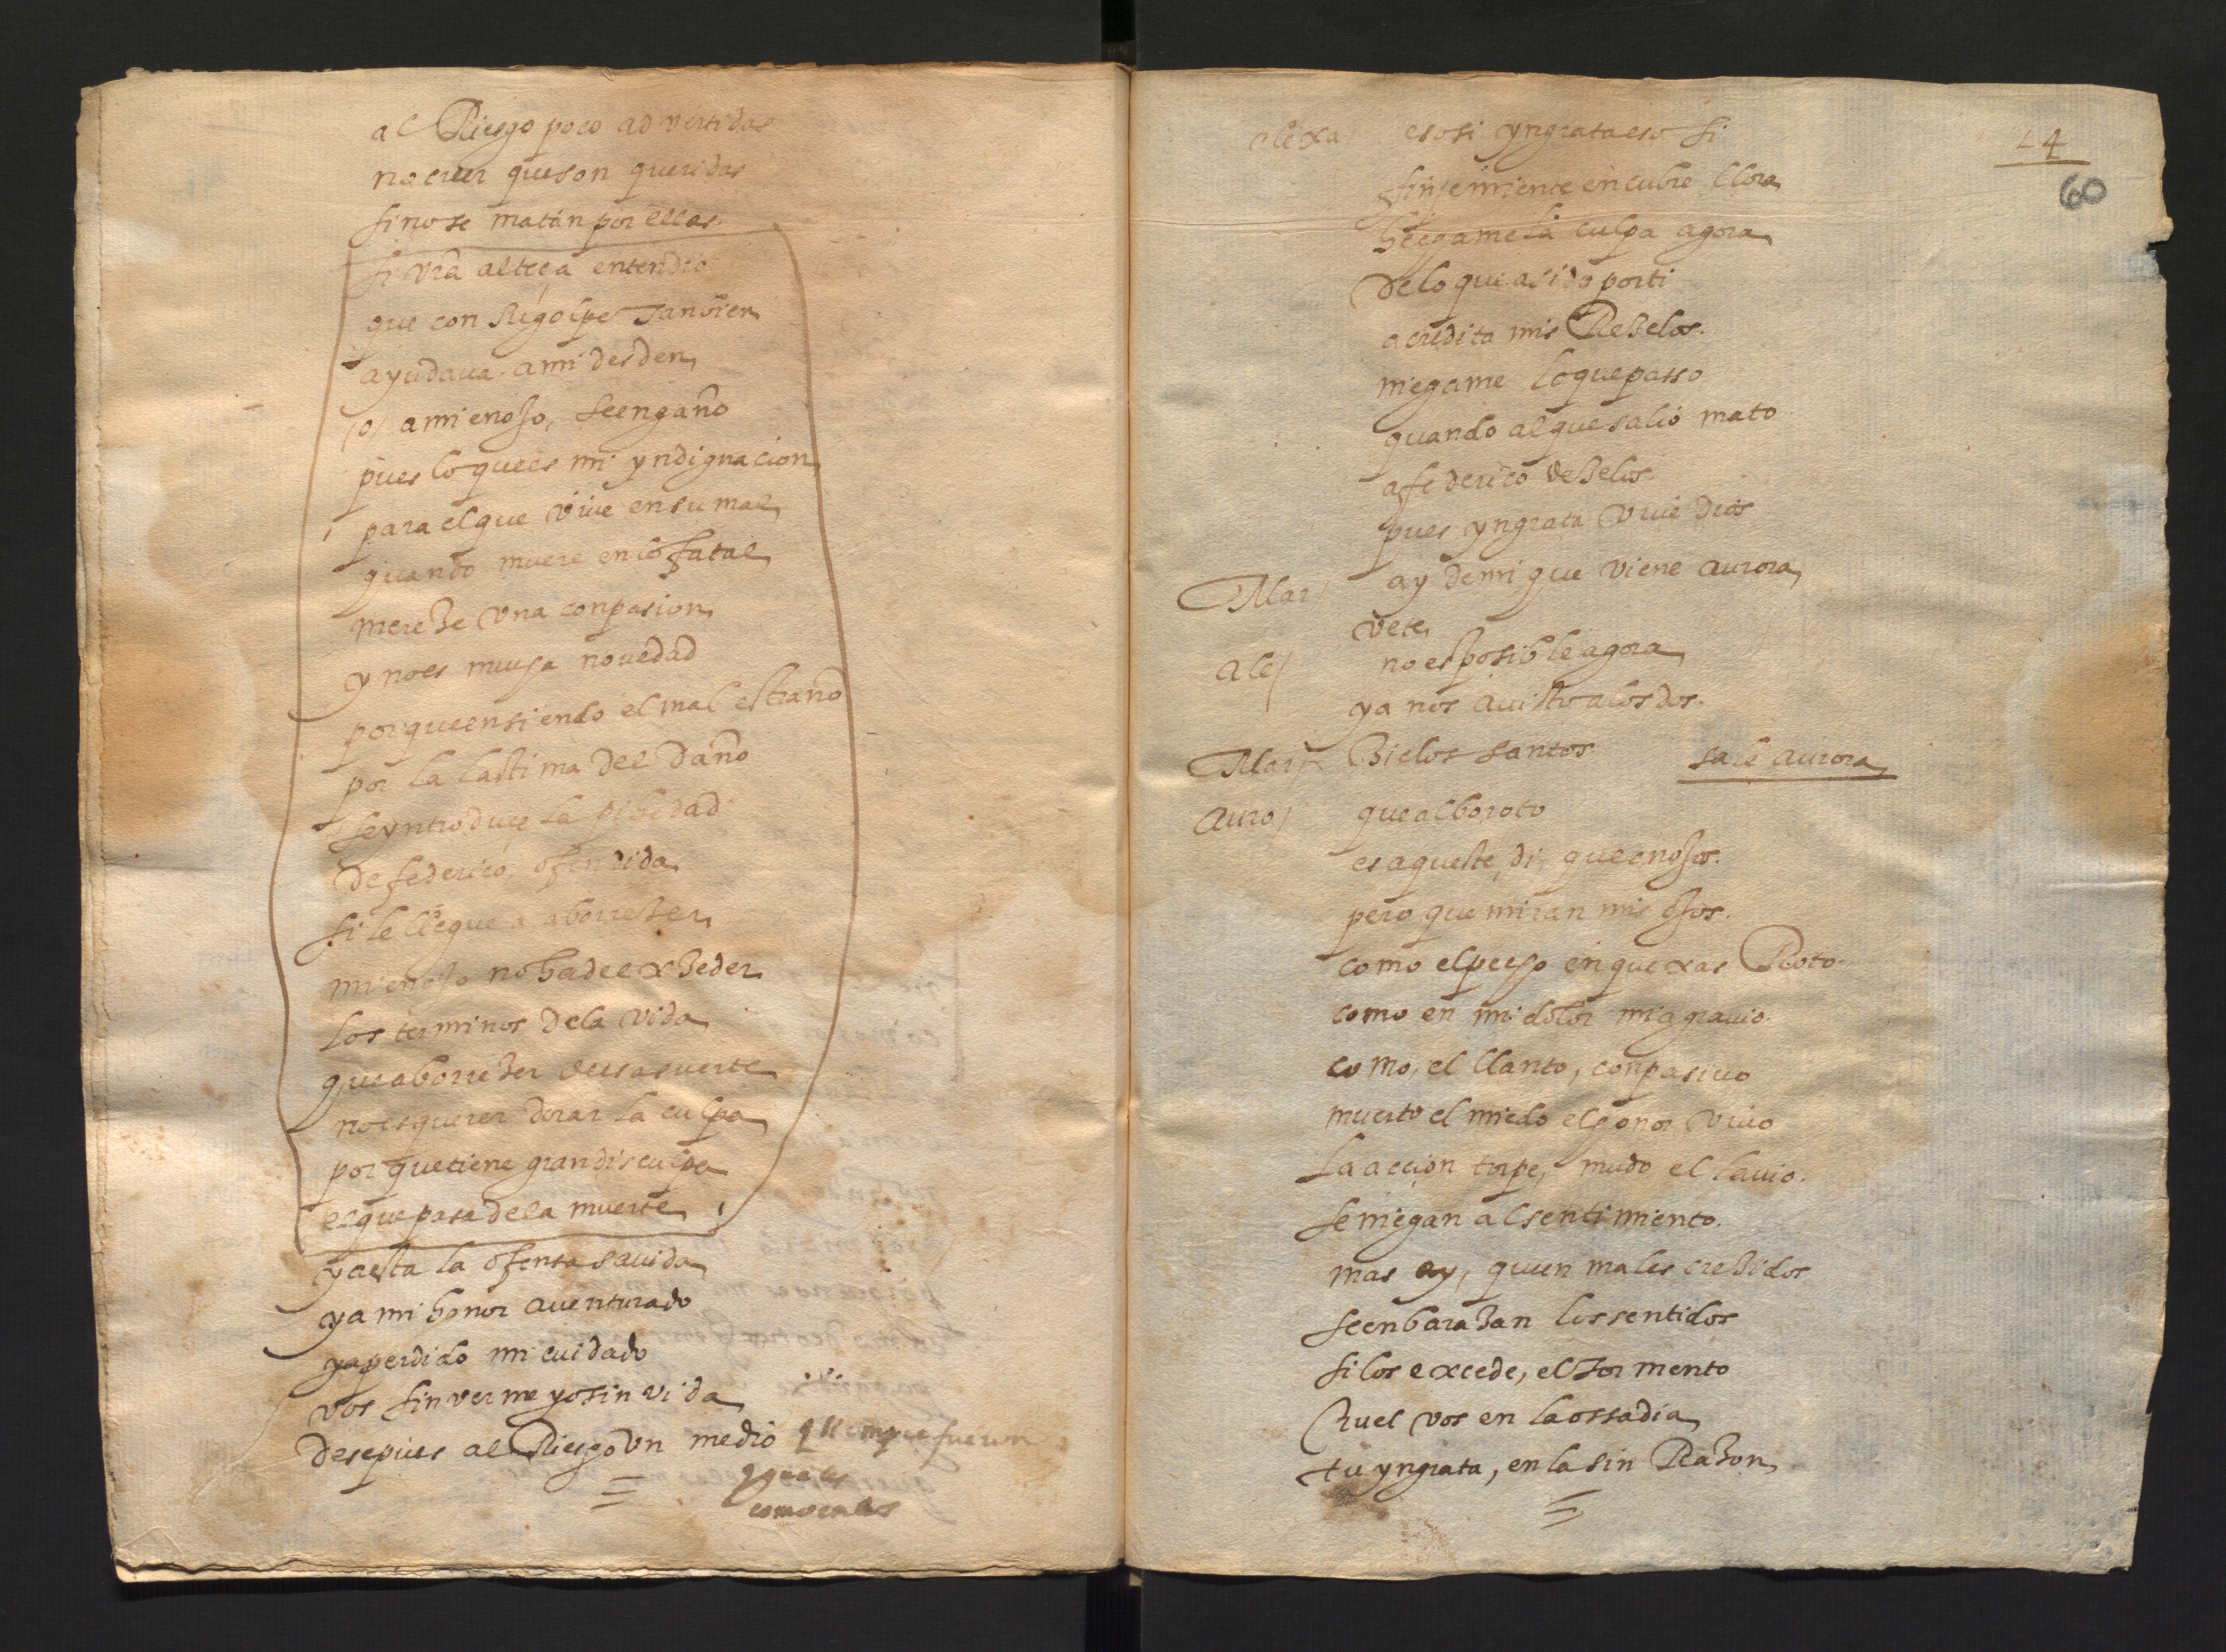 al Riesgo poco advertidas
no creer que son queridas
si no se matan por ellas.
si vra alteça entendio
que con Rigolpe tanbien
ayudaua a mi desden
o a mi enojo, se engaño
pues lo que es mi yndignacion
para el que viue en su mal
quando muere en lo fatal
mereze vna conpasion
y no es mucha nouedad
porque en siendo el mal estraño
por la lastima del daño
se yntroduçe la piedad
de federico ofendida
si le llegue a aborrezer
mi enojo no ha de exzeder
los terminos de la vida
que aborrezer de esa suerte
no es querer dorar la culpa
por que tiene gran disculpa
el que pasa de la muerte
ya esta la ofensa sauida
ya mi honor auenturado
ya perdido mi cuidado
vos sin verme yo sin vida
despues al Riesgo vn medio q siempre fueron
yguales
44
60
alexa eso si yngrata eso si
finje miente encubre llora
hechame la culpa agora
de lo que a sido por ti
acredita mis Rezelos.
niegame lo que passo
quando al que salio mato
a federico de zelos.
pues yngrata viue dios
Mar ay de mi que viene aurora
vete
ale no es posible agora
ya nos a uisto a los dos.
Mar zielos santos sale aurora
auro que alboroto
es aqueste, di, que enojos.
pero que miran mis ojos.
como el pecho en quexas Roto.
como en mi dolor mi agrauio.
como, el llanto, conpasiuo
muerto el miedo el honor viuo
la accion torpe, mudo el lauio.
se niegan al sentimiento.
mas ay, que en males crezidos
se enbarazan los sentidos
si los excede, el tormento
cruel vos en la ossadia
tu yngrata, en la sin Razon